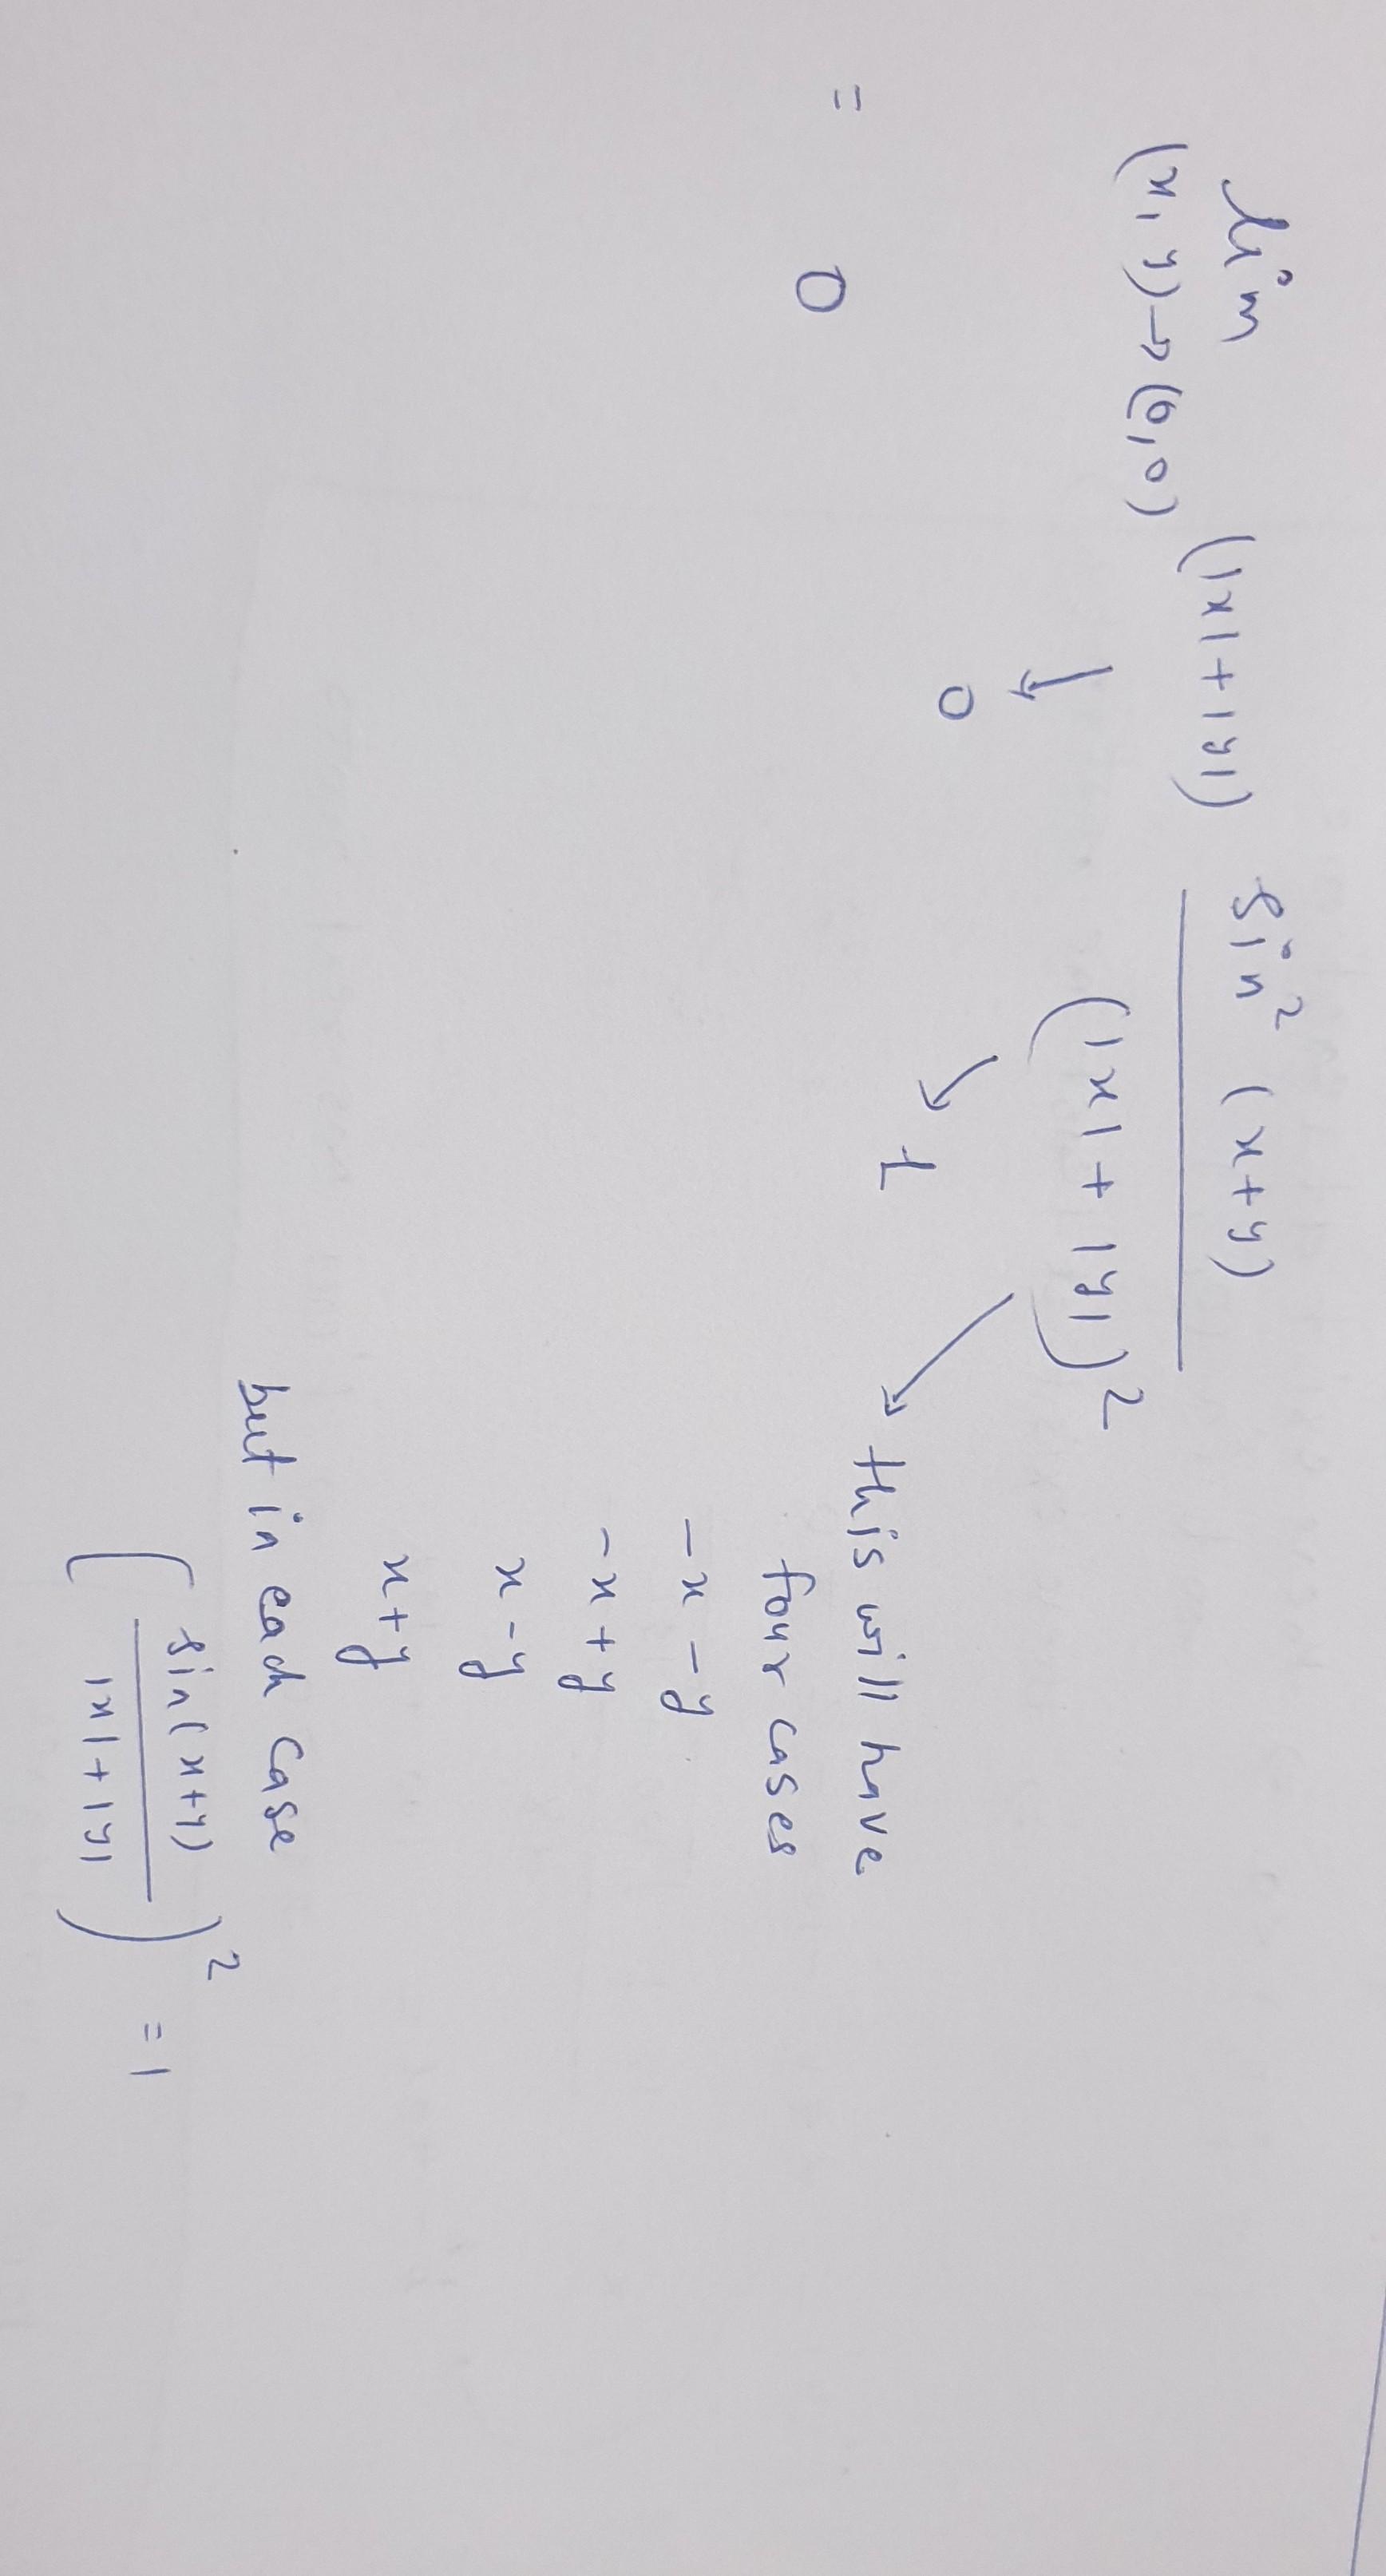 lim (x, y)→(0,0) (|x| + |y|) sin² (x+y) / (|x| + |y|)²
↓ 0
↘ 1
↘ this will have
four cases
= 0
-x - y
-x + y
x - y
x + y
but in each case
(sin(x+y) / |x| + |y|)² = 1